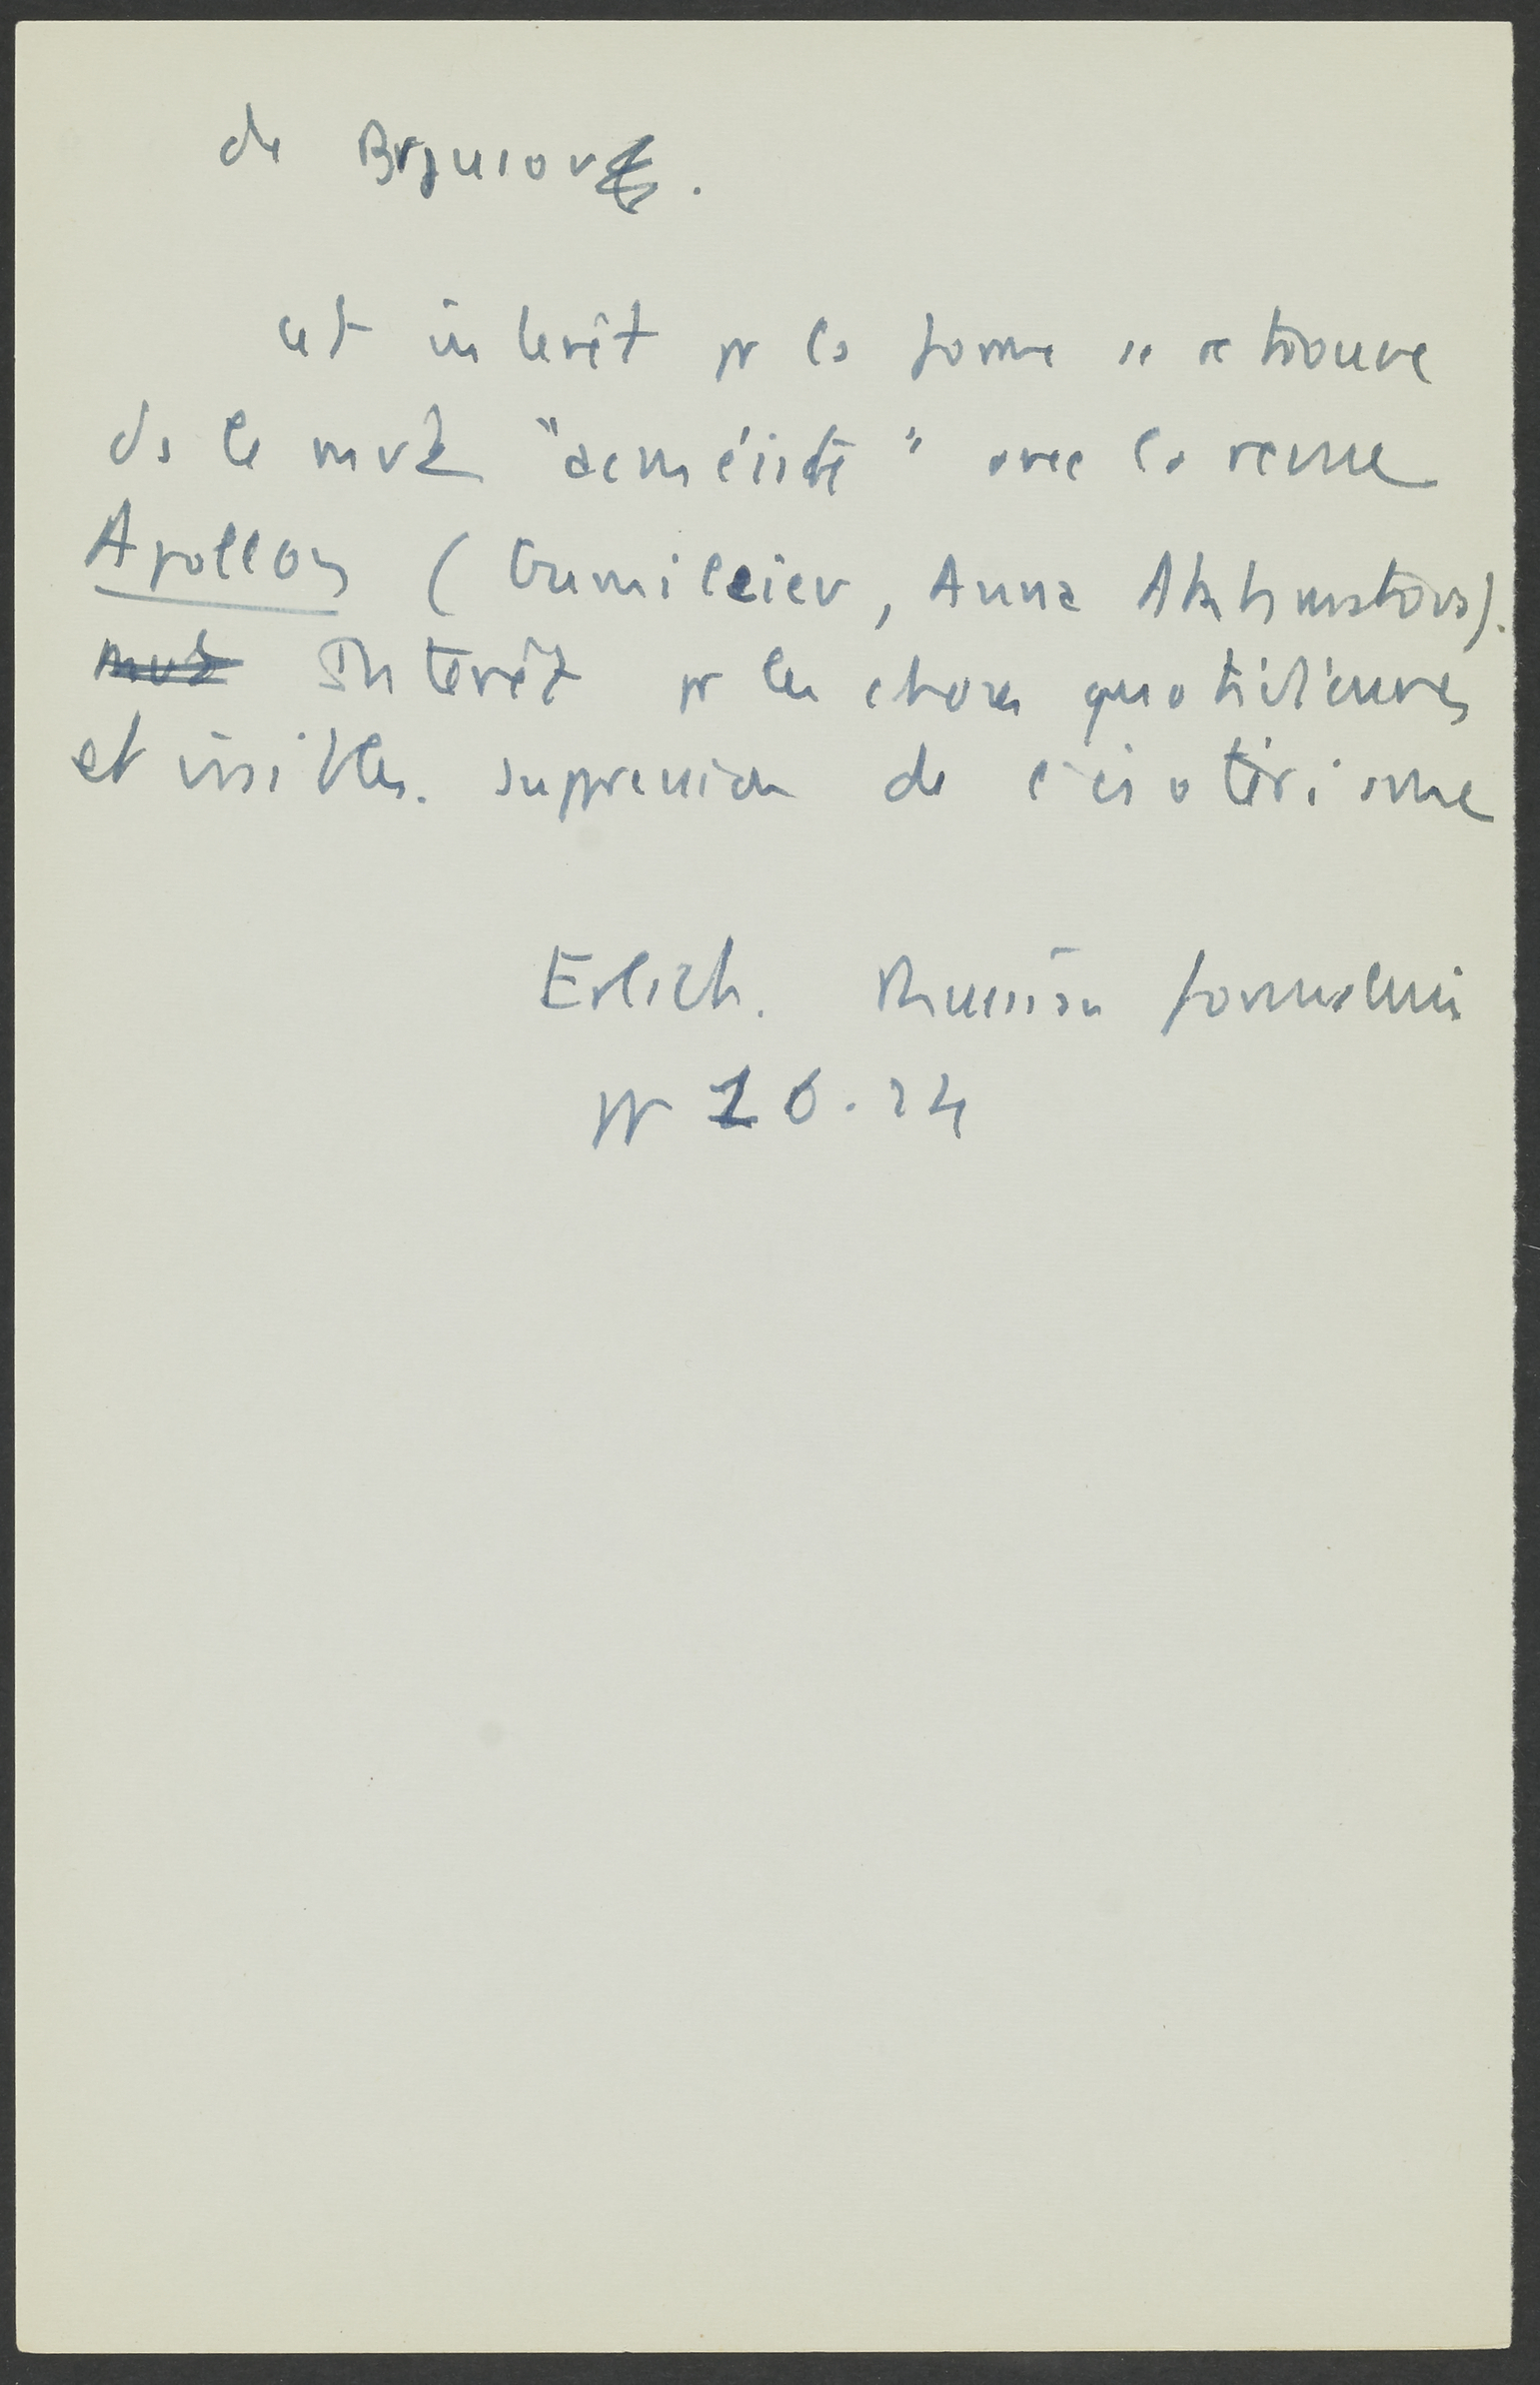 de Brjusov.
cet intérêt pr la forme se retrouve
ds le mvt "acméiste" avec la revue
Apollon (Gumileiev, Anna Akhmatova).
mvt Intérêt pr les choses quotidiennes
et visibles. suppression de l'ésotérisme
Erlich. Russian formalism
pp 16.24